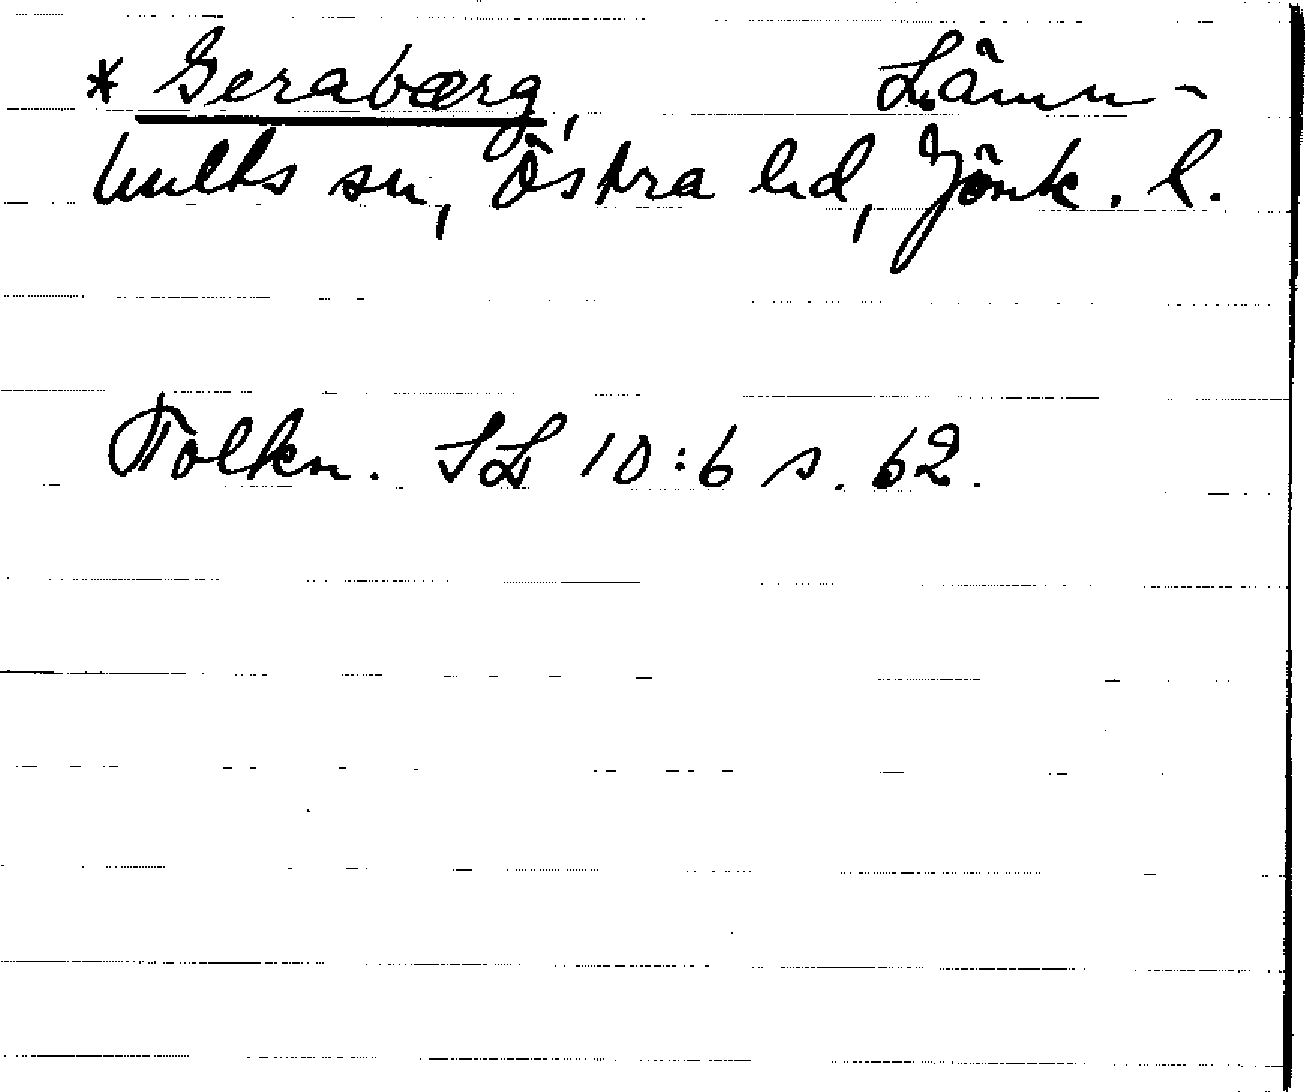 * Gerabærg, Lämn-
hults sn, Östra hd, Jönk. l.
Folkn. SL 10:6 s. 62.